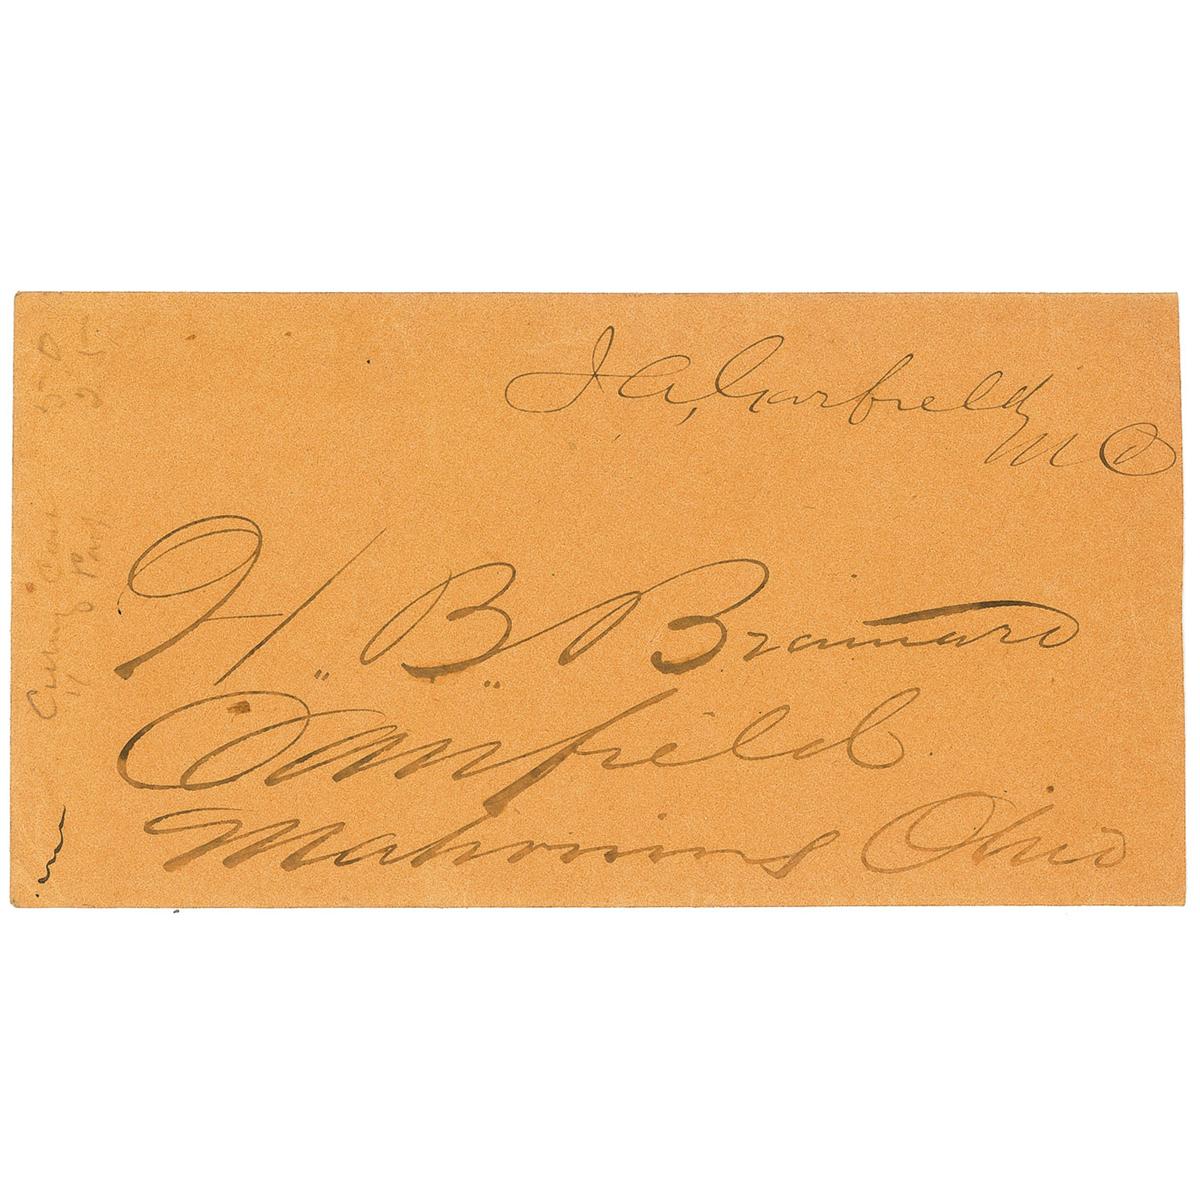 J. A. Garfield
M C
H. B. Brainard
Canfield
Mahoning Ohio